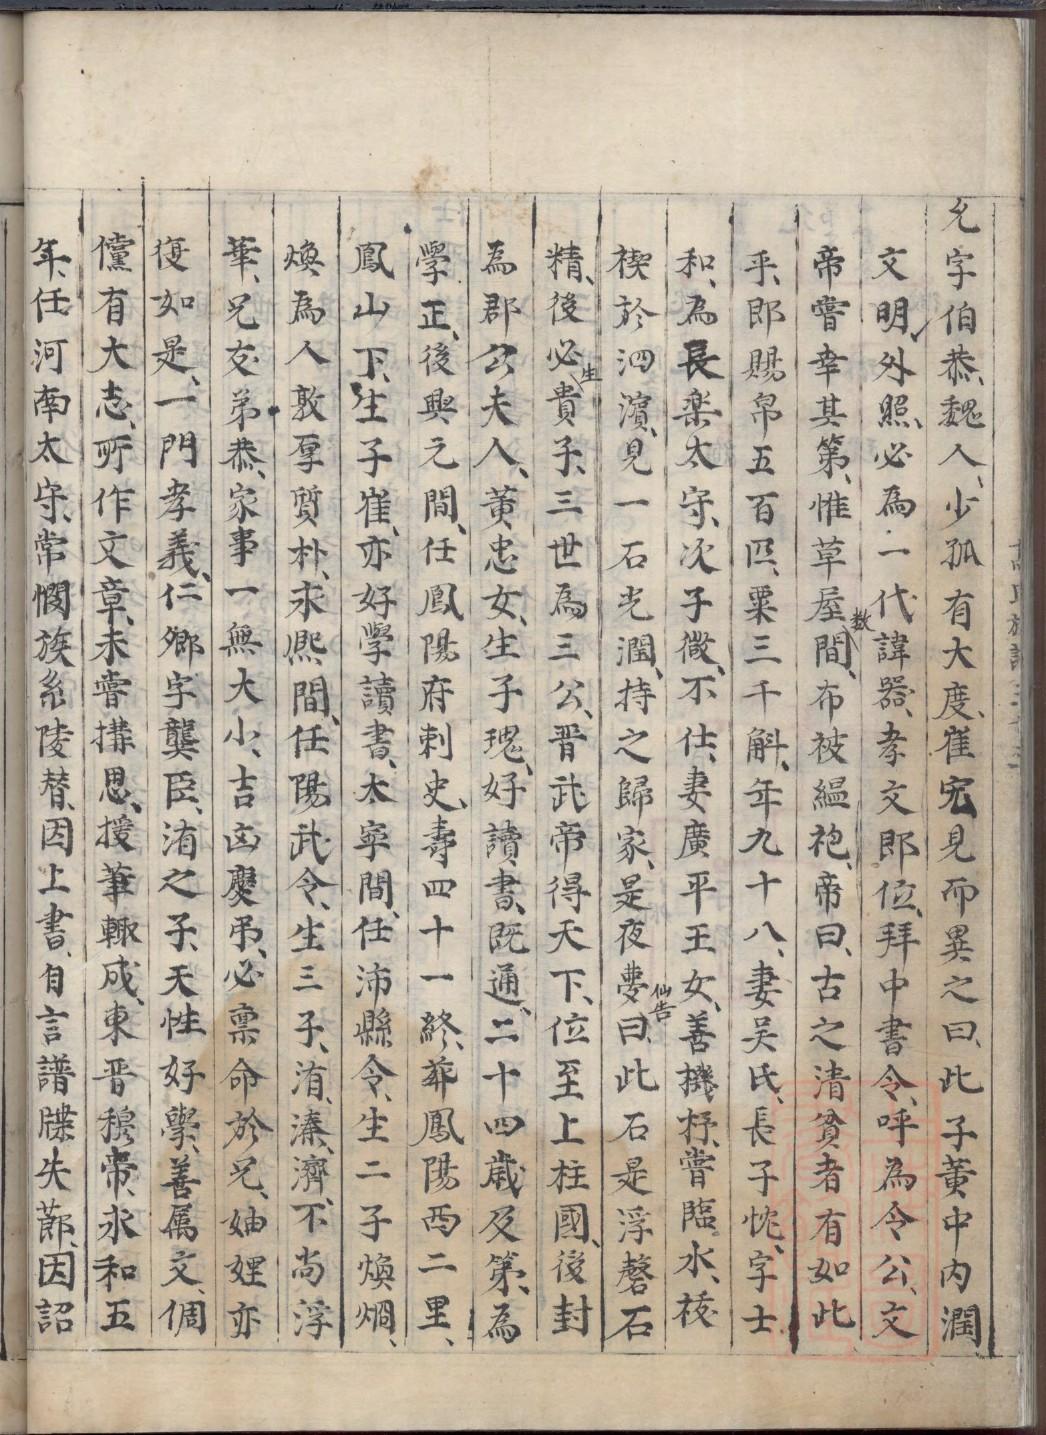 允字伯恭、魏人、少孤有大度、崔宏見而異之曰、此子黃中內潤、
文明外照、必為一代諱器、孝文郎位、拜中書令、呼為令公、文
帝嘗幸其第、惟草屋數間、布被縕袍、帝曰、古之清貧者有如此
乎、郎賜帛五百匹、粟三千斛、年九十八、妻吴氏、長子忱、字士
和、為長楽太守、次子微、不仕、妻廣平王女、善機杼、嘗臨水、祓
禊於泗濵、見一石光潤、持之歸家、是夜夢仙告曰、此石是浮磬石
精、後必生貴子、三世為三公、晋武帝得天下、位至上柱國、後封
為郡公夫人、黃忠女、生子瑰、好讀書、既通、二十四歳及第、為
學正、後興元間、任鳳陽府刺史、壽四十一終、葬鳳陽西二里、
鳳山下、生子隺、亦好學讀書、太寧間、任沛縣令、生二子煥烱、
煥為人敦厚質朴、永熙間、任陽武令、生三子、洧、溱、濟、不尚浮
華、兄友弟恭、家事一無大小、吉凶慶弔、必稟命於兄、妯娌亦
復如是、一門孝義、仁郷字龔臣、洧之子、天性好學、善属文、倜
儻有大志、所作文章、未嘗搆思、援筆輙成、東晋穆帝、永和五
年、任河南太守、常憫族系陵替、因上書、自言譜牒失蔀、因詔